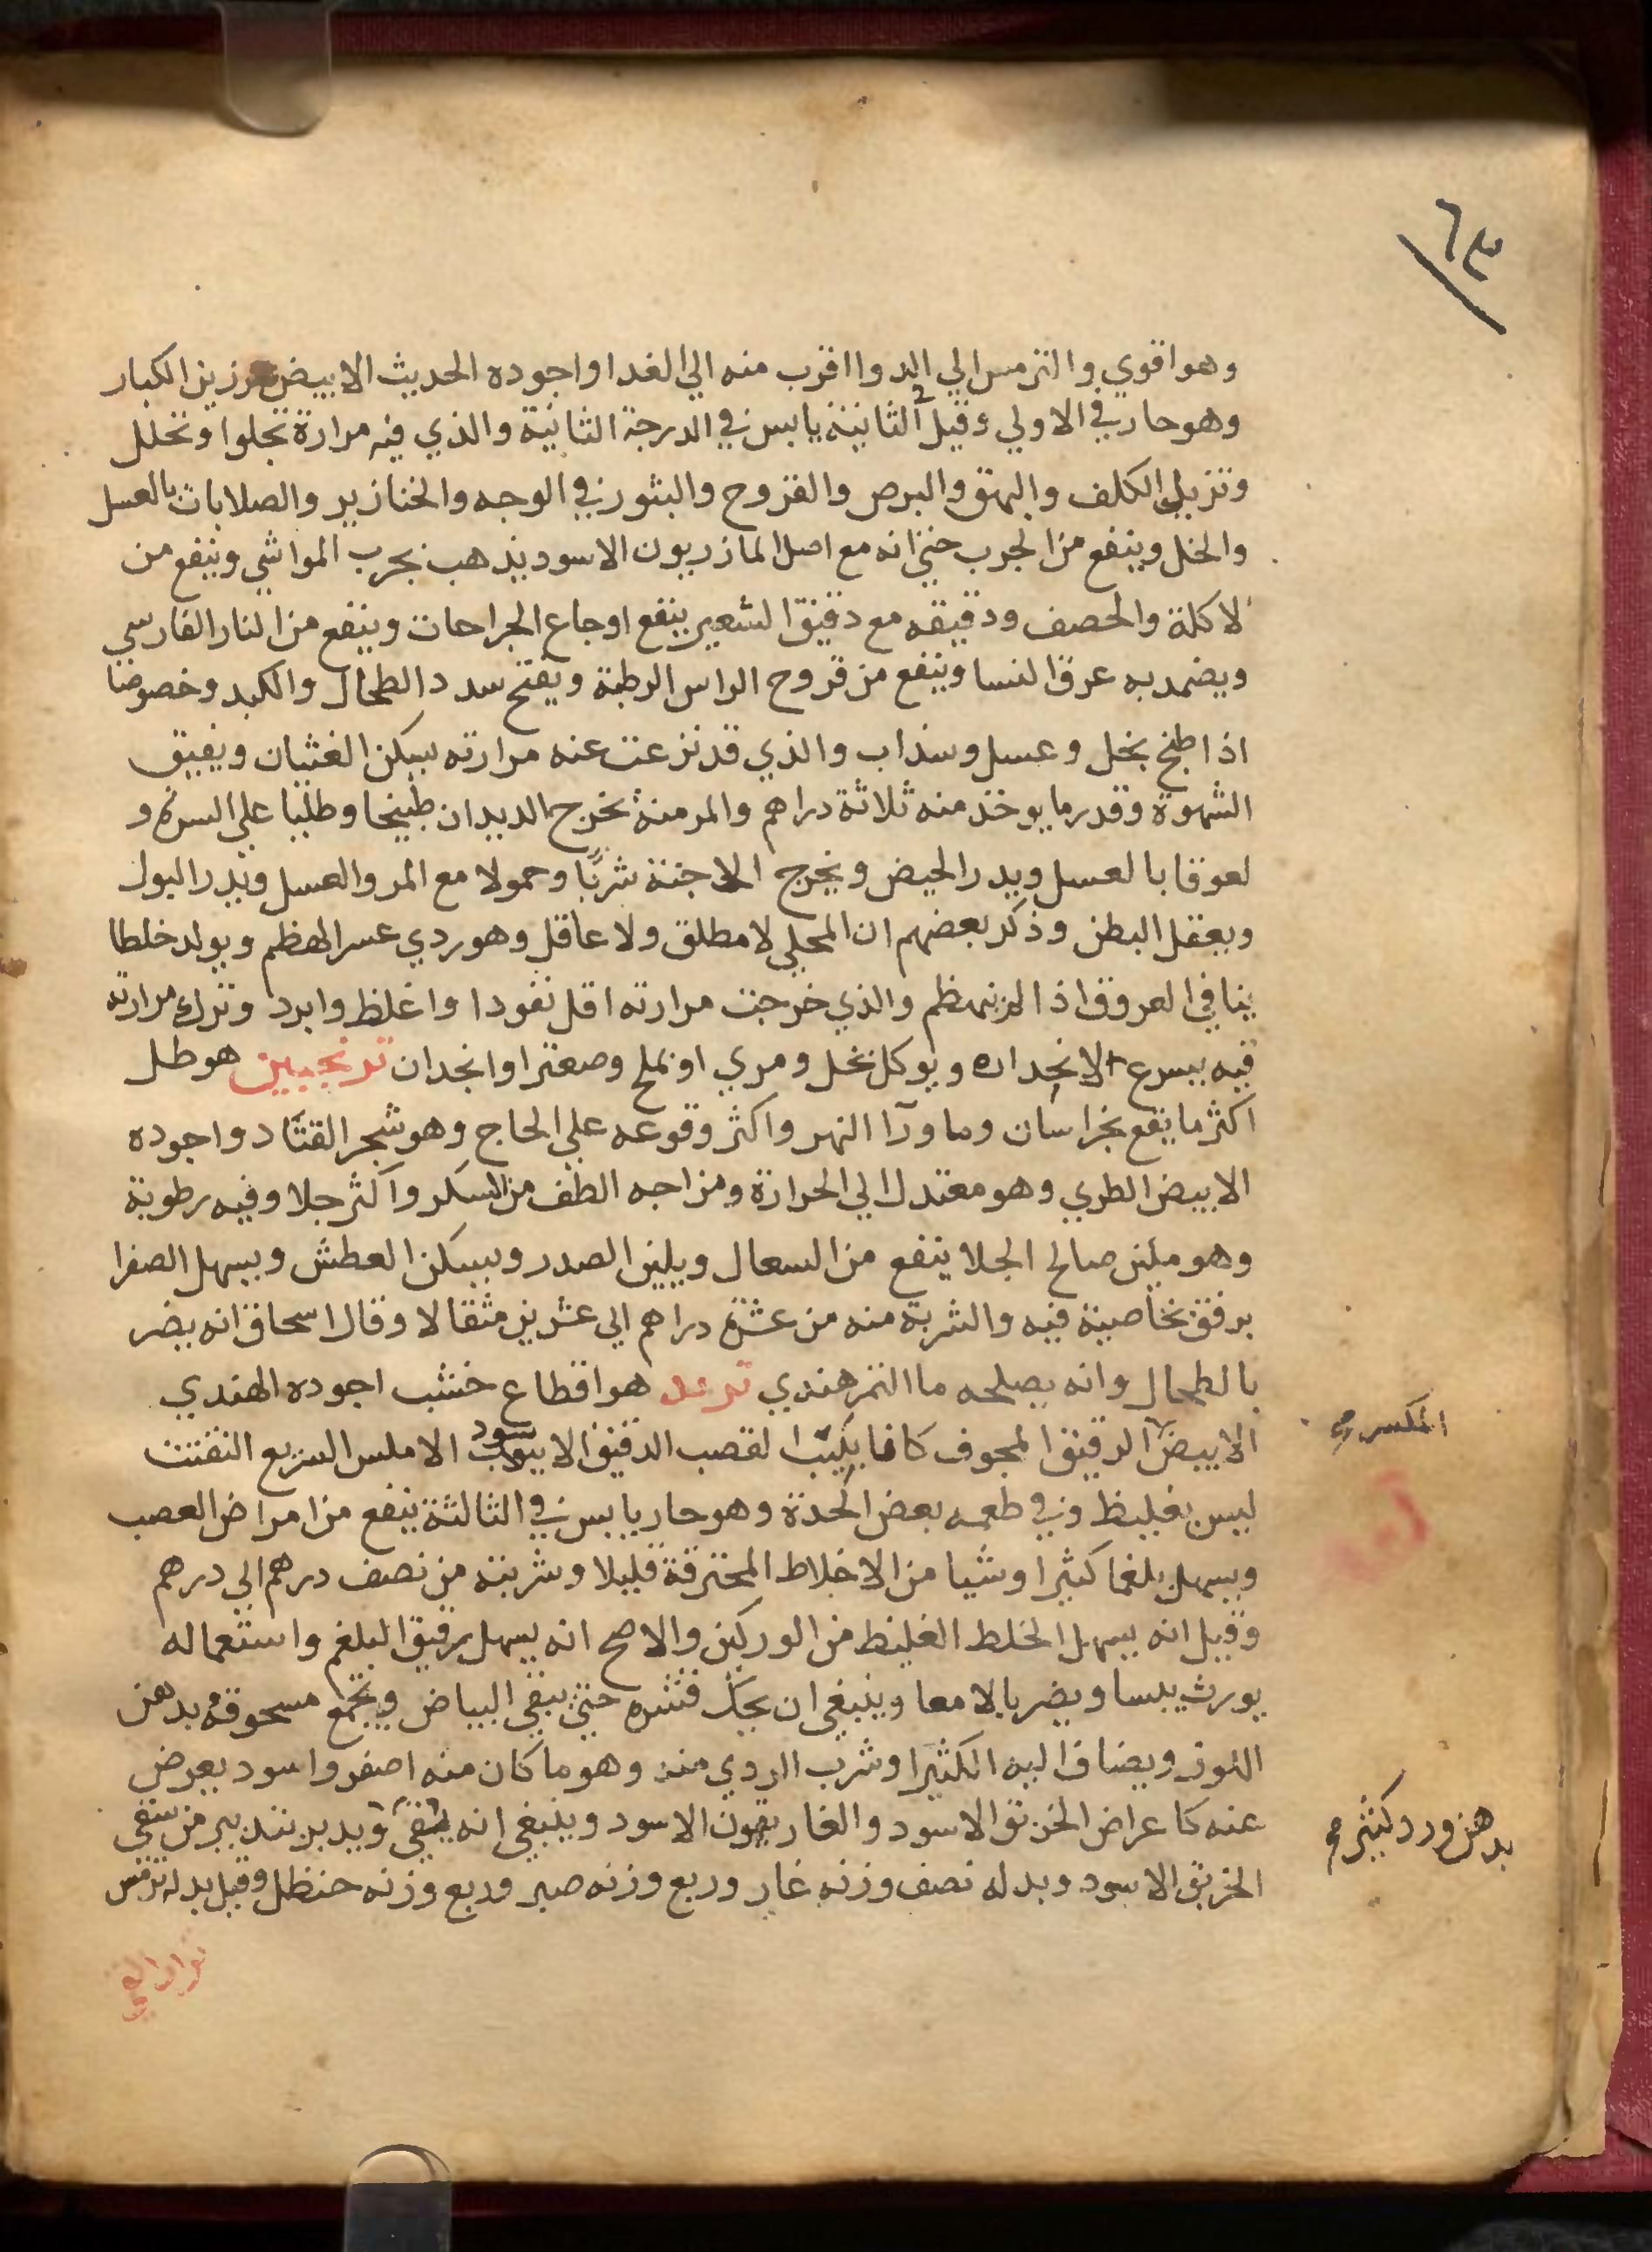 ٦٣
وهو اقوي والترمس الي الدوا اقرب منه الي الغدا واجوده الحديث الابيض الرزين الكبار
وهو حار في الاولي وقيل الثانية يابس في الدرجة الثانية والذي فيه مرارة تجلوا وتحلل
وتزيل الكلف والبهق والبرص والقروح والبثور في الوجه والخنازير والصلابات بالعسل
والخل وينفع من الجرب حتي انه مع اصل المازريون الاسود يذهب بجرب المواشي وينفع من
الاكلة والحصف ودقيقه مع دقيق الشعير ينفع اوجاع الجراحات وينفع من النار الفارسي
ويضمد به عرق النسا وينفع من قروح الراس الرطبة ويفتح سدد الطحال والكبد وخصوصا
اذا طبخ بخل وعسل وسذاب والذي قد نزعت عنه مرارته يسكن الغثيان ويفيق
الشهوة وقدر ما يوخذ منه ثلاثة دراهم والمر منه يخرج الديدان طبيخا وطليا علي السرة و
لعوقا بالعسل ويدر الحيض ويخرج الاجنة شربا وحمولا مع المر والعسل ويدر البول
ويعقل البطن وذكر بعضهم ان المحلي لا مطلق ولا عاقل وهو ردي عسر الهظم ويولد خلطا
ينا في العروق اذا لم ينهظم والذي خرجت مرارته اقل نفودا واغلظ وابرد وترك مرارته
فيه يسرع الانحداره ويوكل بخل ومري او بملح وصعتر او انجدان ترنجبين هو طل
اكثر ما يقع بخراسان وما ورآ النهر واكثر وقوعه علي الحاج وهو شجر القتاد واجوده
الابيض الطري وهو معتدل الي الحرارة ومزاجه الطف من السكر واكثر جلا وفيه رطوبة
وهو ملين صالح الجلا ينفع من السعال ويلين الصدر ويسكن العطش ويسهل الصفرا
برفق بخاصية فيه والشربة منه من عشرة دراهم الي عشرين مثقالا وقال اسحاق انه يضر
بالطحال وانه يصلحه ما التمر هندي تربد هو اقطاع خشب اجوده الهندي
الابيض الرقيق المجوف كانابيب القصب الدقيق الابيوب سود الاملس السريع التفتت
ليس بغليظ وفي طعمه بعض الحدة وهو حار يابس في الثالثة ينفع من امراض العصب
ويسهل بلغما كثيرا وشيا من الاخلاط المحترقة قليلا وشربته من نصف درهم الي درهم
وقيل انه يسهل الخلط الغليظ من الوركين والاصح انه يسهل برقيق البلغم واستعماله
يورث يبسا ويضر بالامعا وينبغي ان يحك قشره حتي يبقي البياض ويجمع مسحوقه بدهن
اللوز ويضاف اليه الكثيرا وشرب الردي منه وهو ما كان منه اصفر واسود يعرض
عنه كاعراض الخربق الاسود والغاريقون الاسود وينبغي انه يتقي ويدبر بتدبير من سقي
الخربق الاسود وبدله نصف وزنه غار وربع وزنه صبر وربع وزنه حنظل وقيل بدله ترمس
بدهن ورد كثير صح